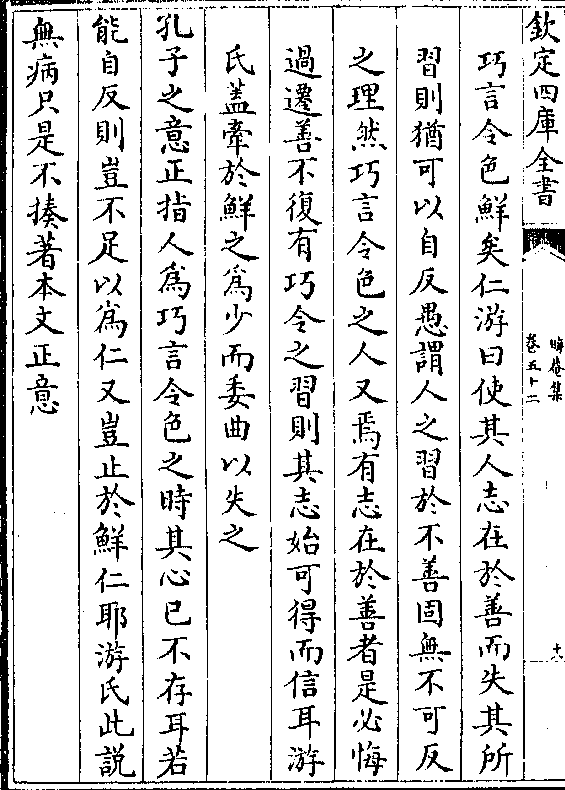 欽定四庫全書
晦菴集
卷五十二
十八
巧言令色鮮矣仁游曰使其人志在於善而失其所
習則猶可以自反愚謂人之習於不善固無不可反
之理然巧言令色之人又焉有志在於善者是必悔
過遷善不復有巧令之習則其志始可得而信耳游
氏蓋牽於鮮之為少而委曲以失之
孔子之意正指人為巧言令色之時其心已不存耳若
能自反則豈不足以為仁又豈止於鮮仁耶游氏此説
無病只是不揍著本文正意